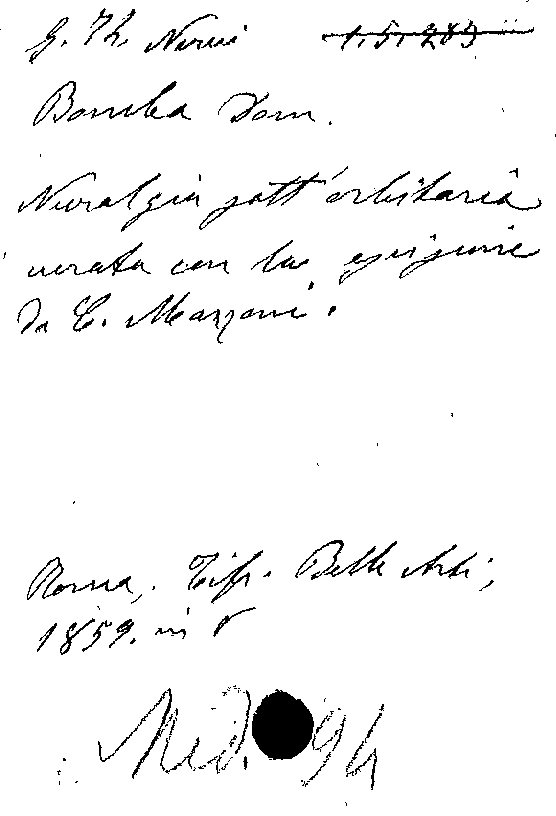 G. Th. Nervi 1.5.283
Bomba Dom.
Nevralgia sott'orbitaria
curata con la
da C. Manzoni.
Roma, Tip. Belle Arti,
1859. in 8
Med. 94